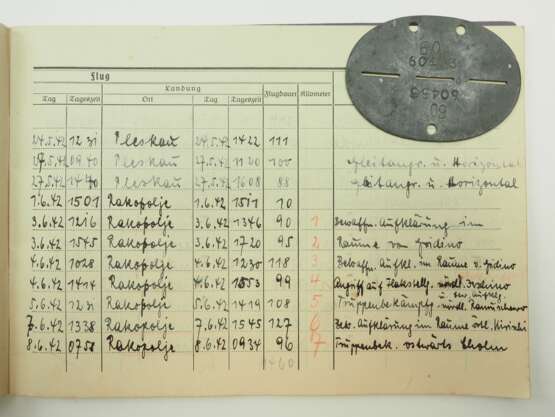 Flug
Landung
Tag Tageszeit Ort Tag Tageszeit Flugdauer Kilometer
24.5.42 1231 Pleskau 24.5.42 1422 111
27.5.42 0940 Pleskau 27.5.42 1120 100 Gleitangr. u. Horizontal
27.5.42 1440 Pleskau 27.5.42 1608 88 Gleitangr. u. Horizontal
1.6.42 1501 Rakopolje 1.6.42 1511 10
3.6.42 1216 Rakopolje 3.6.42 1346 90 1 Bewaffn. Aufklärung im
3.6.42 1545 Rakopolje 3.6.42 1720 95 2 Raume von Gridino
4.6.42 1028 Rakopolje 4.6.42 1230 118 3 Bewaffn. Aufkl. im Raume v. Gridino
4.6.42 1414 Rakopolje 4.6.42 1553 99 4 Angriff auf Flakstell. nördl.
5.6.42 1231 Rakopolje 5.6.42 1419 108 5 Truppenbekämpf. u. bew. Aufklg. nördl.
7.6.42 1338 Rakopolje 7.6.42 1545 127 6 Bew. Aufklärung im Raume östl. Kirischi
8.6.42 0758 Rakopolje 8.6.42 0934 96 7 Truppenbek. ostwärts Cholm
1460
60
60